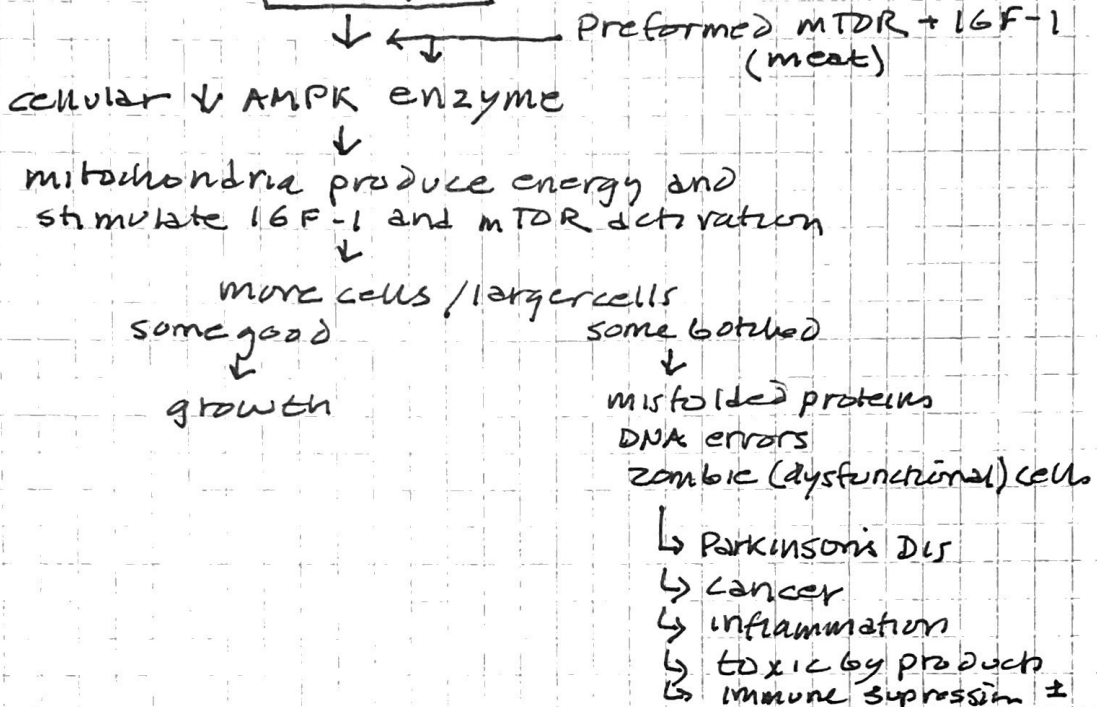 Preformed mTOR + IGF-1
(meat)
cellular ↓ AMPK enzyme
mitochondria produce energy and
stimulate IGF-1 and mTOR activation
more cells / larger cells
some good
some botched
growth
misfolded proteins
DNA errors
zombie (dysfunctional) cells
↳ Parkinson's Dis
↳ cancer
↳ inflammation
↳ toxic by product
↳ immune supression ±